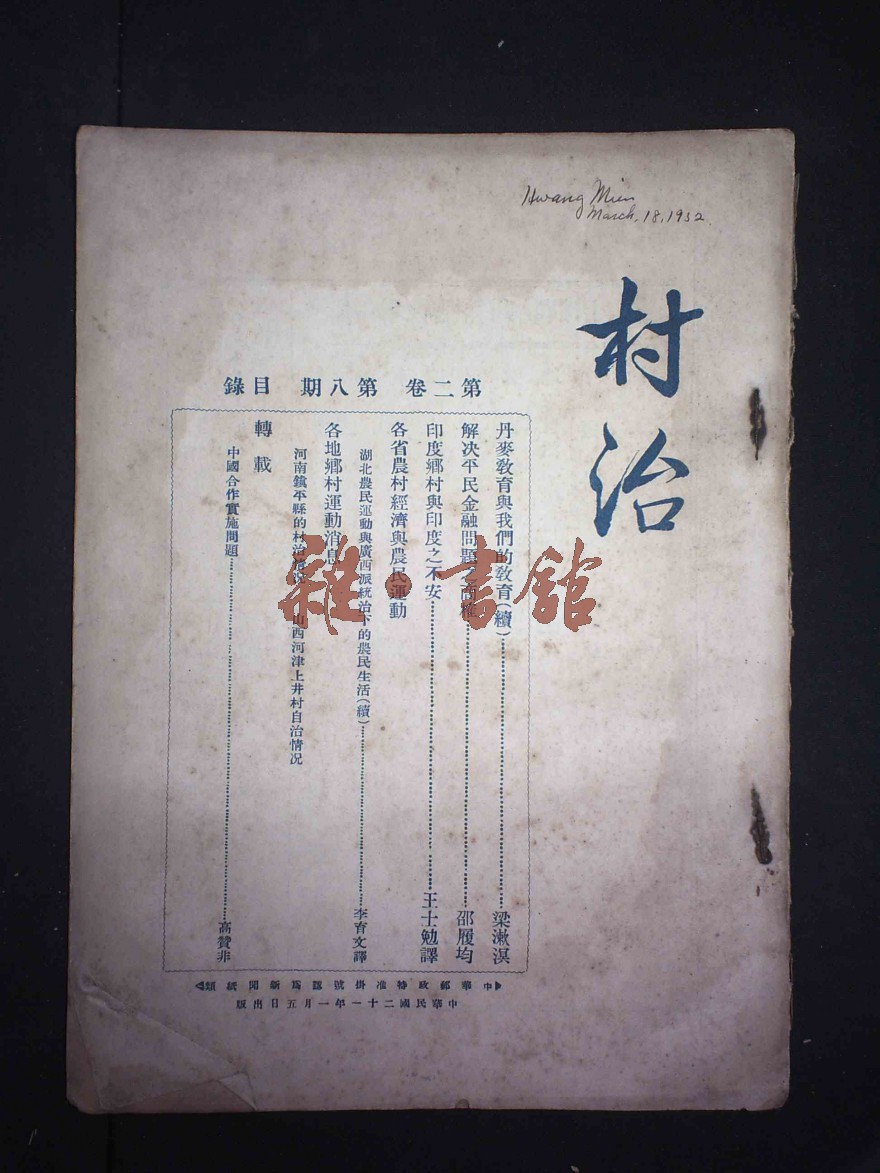 Hwang Mien
March, 18, 1932.
村治
第二卷 第八期 目錄
丹麥教育與我們的教育(續)……梁漱溟
解决平民金融問題之商榷……邵履均
印度鄉村與印度之不安……王士勉譯
各省農村經濟與農民運動
湖北農民運動與廣西派統治下的農民生活(續)……李育文譯
各地鄉村運動消息
河南鎮平縣的村治情况 山西河津上井村自治情况
轉載
中國合作實施問題……高贊非
中華郵政特准掛號認爲新聞紙類
中華民國二十一年一月五日出版
雜·書館